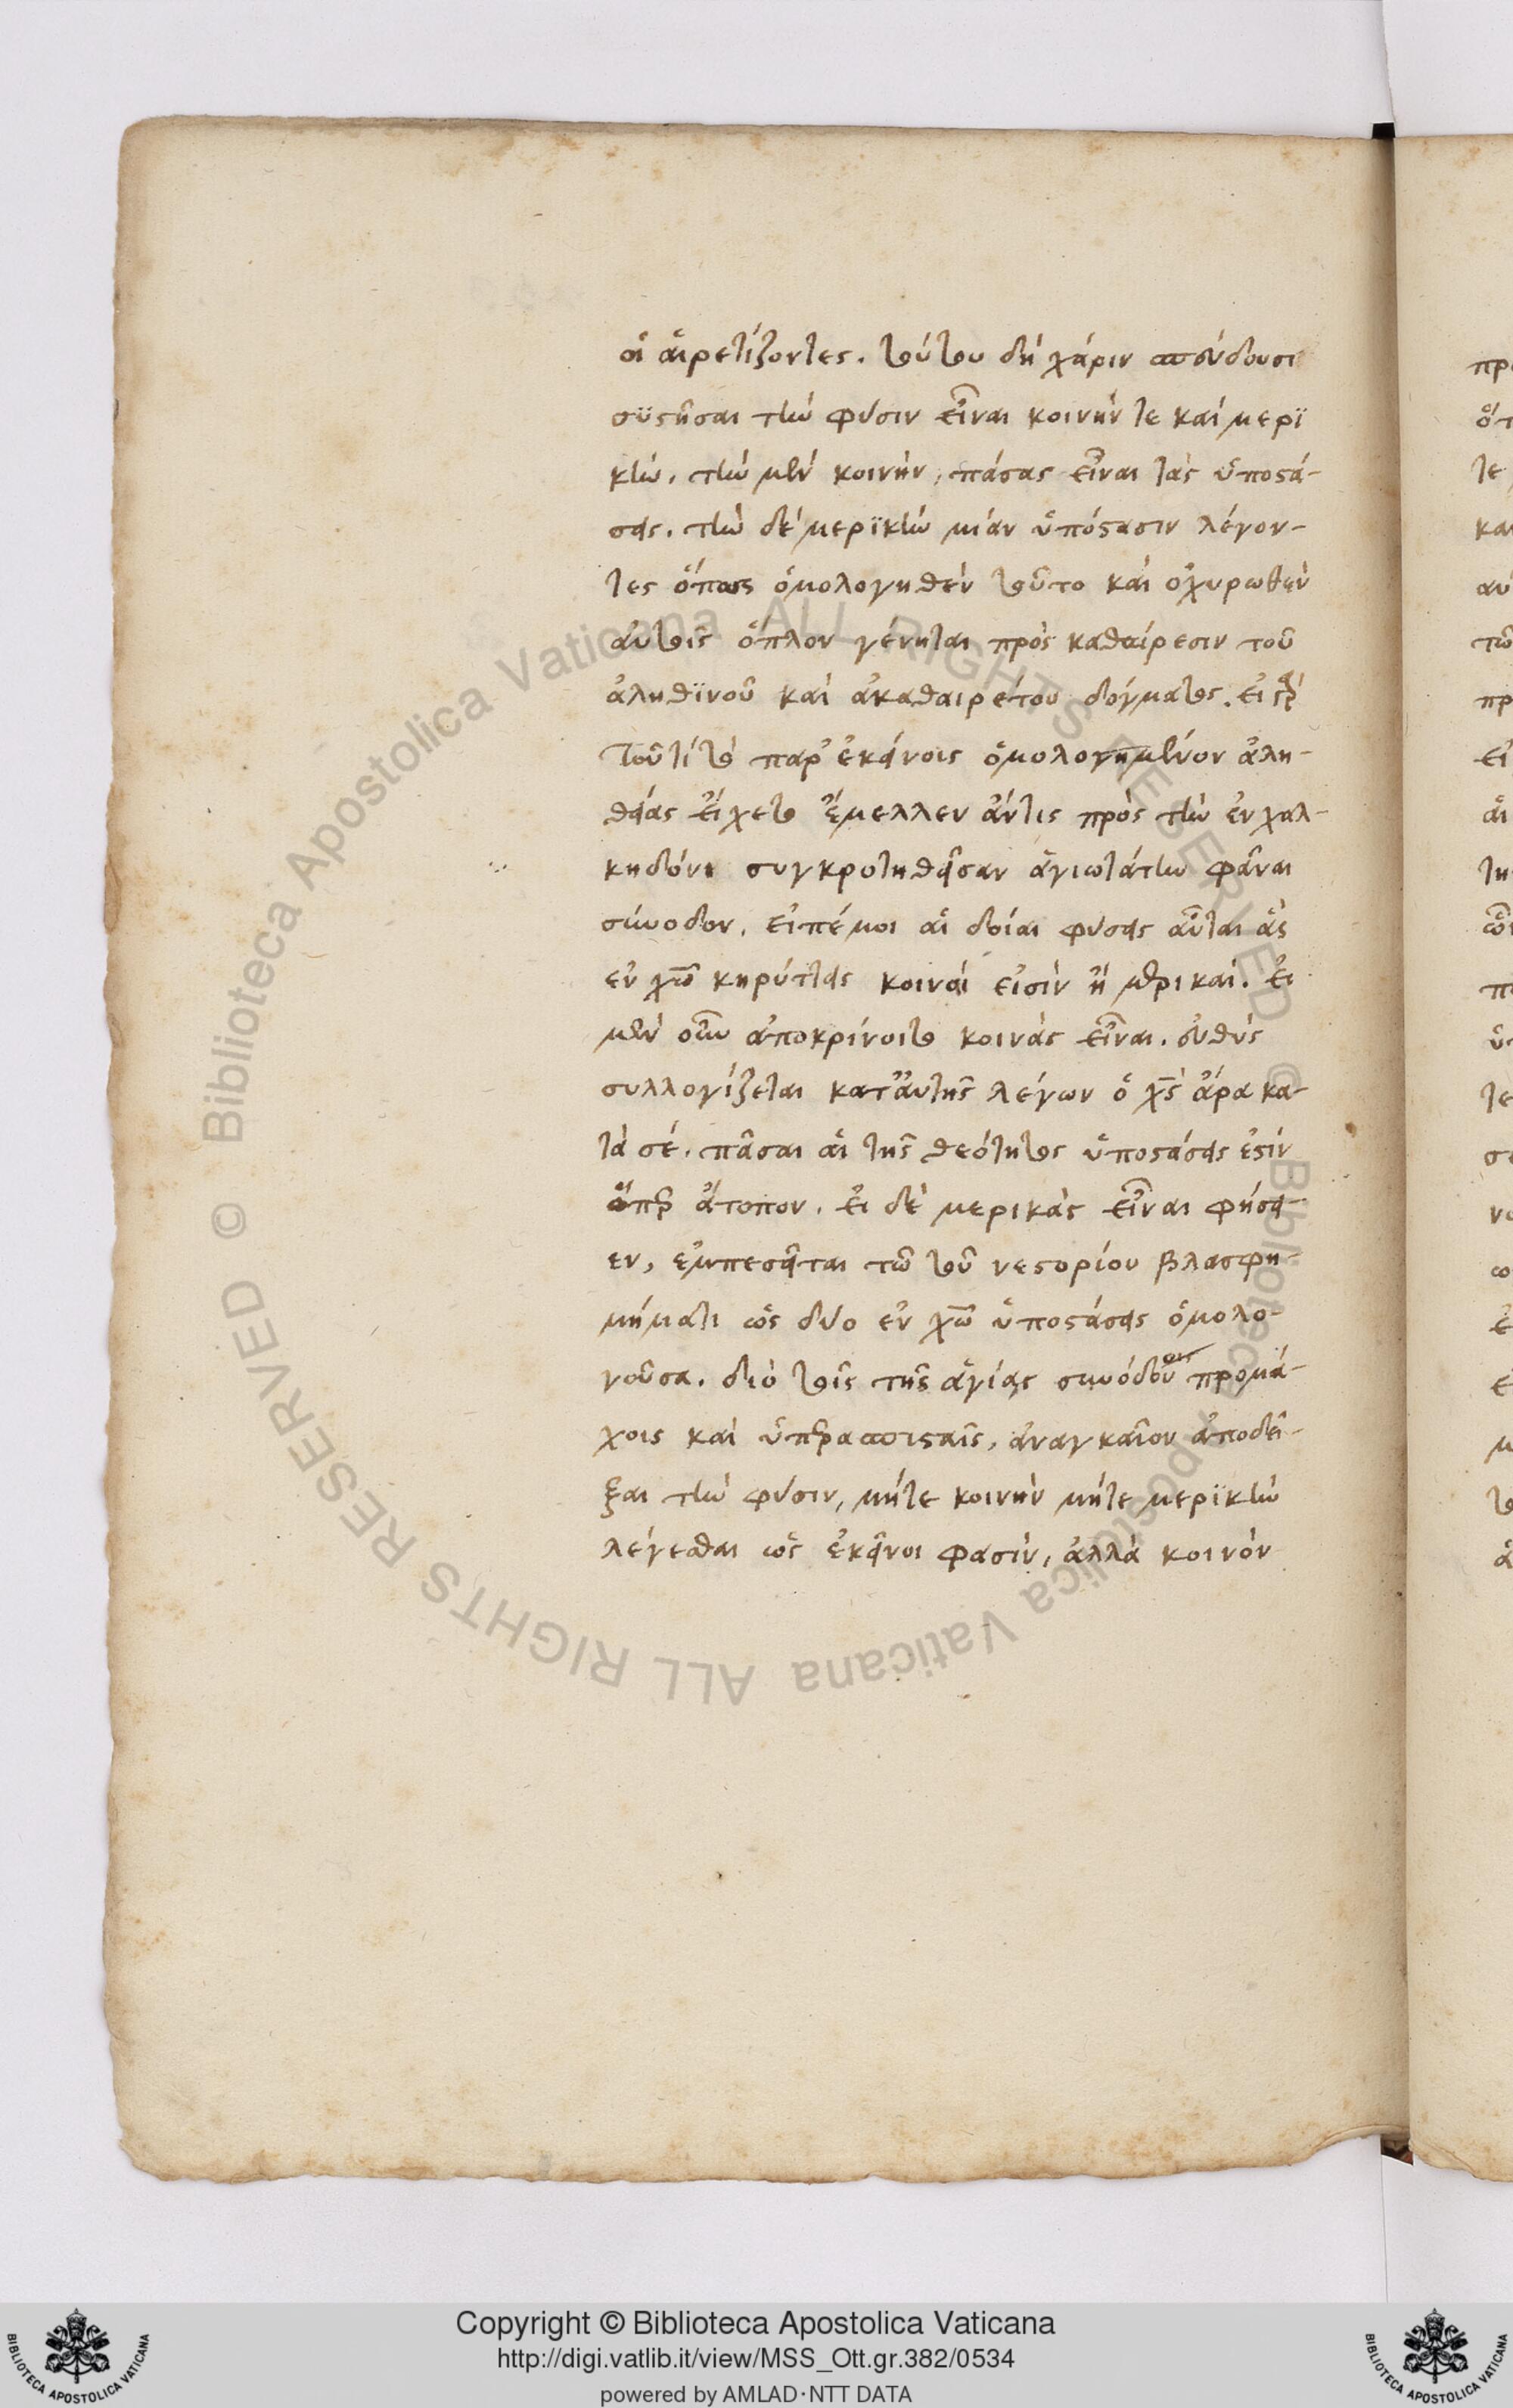 οἱ αἱρετίζοντες. τούτου δὴ χάριν σπεύδουσι
συστῆσαι τὴν φύσιν εἶναι κοινήν τε καὶ μερϊ
κήν. τὴν μὲν κοινὴν, πάσας εἶναι τὰς ὑποστά-
σεις. τὴν δὲ μερϊκὴν μίαν ὑπόστασιν λέγον-
τες ὅπως ὁμολογηθὲν τοῦτο καὶ ὀχυρωθὲν
αὐτοῖς ὅπλον γένηται πρὸς καθαίρεσιν τοῦ
ἀληθϊνοῦ καὶ ἀκαθαιρέτου δόγματος. εἰ γὰρ
τοῦτί τὸ παρ' ἐκείνοις ὁμολογημένον ἀλη-
θείας εἴχετο ἔμελλεν ἄν τις πρὸς τὴν ἐν χαλ-
κηδόνι συγκροτηθεῖσαν ἁγιωτάτην φᾶναι
σύνοδον. εἰπέ μοι αἱ δοιαὶ φύσεις αὗται ἃς
ἐν χῶ κηρύττεις κοιναί εἰσιν ἢ μερικαί. εἰ
μὲν οὖν ἀποκρίνοιτο κοινὰς εἶναι. εὐθὺς
συλλογίζεται κατ' αὐτῆς λέγων ὁ χς ἄρα κα-
τὰ σέ. πᾶσαι αἱ τῆς θεότητος ὑποστάσεις ἐστίν
ὅπερ ἄτοπον. εἰ δὲ μερικὰς εἶναι φήσει-
εν, ἐμπεσεῖται τῶ τοῦ νεστορίου βλασφη-
μήματι ὡς δύο ἐν χῶ ὑποστάσεις ὁμολο-
γοῦσα. διὸ τοῖς τῆς ἁγίας συνόδου προμά-
χοις καὶ ὑπερασπισταῖς, ἀναγκαῖον ἀποδεῖ-
ξαι τὴν φύσιν, μήτε κοινὴν μήτε μερϊκὴν
λέγεσθαι ὡς ἐκεῖνοι φασὶν, ἀλλὰ κοινὸν
Copyright © Biblioteca Apostolica Vaticana
http://digi.vatlib.it/view/MSS_Ott.gr.382/0534
powered by AMLAD·NTT DATA